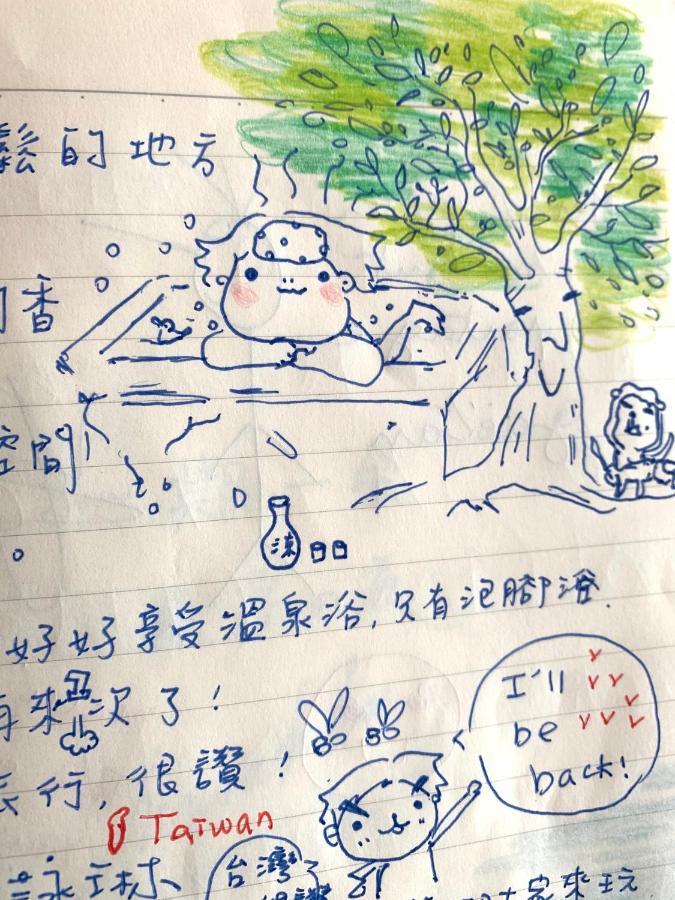 鬆的地方
香
空間
好好享受溫泉浴,只有泡腳浴.
再來 次了!
旅行,很讚!
I'll
be
back!
Taiwan
台灣
大家來玩